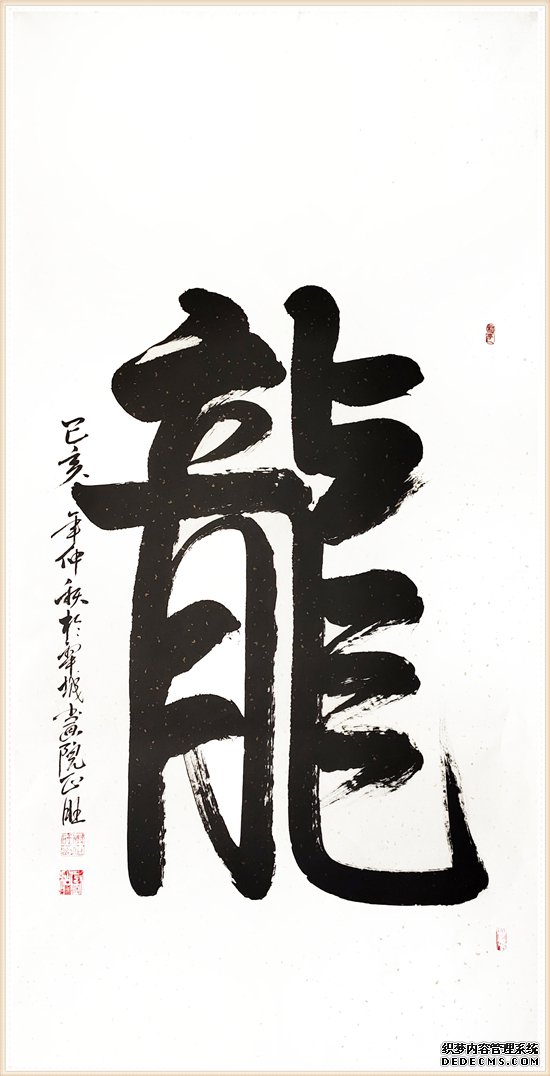 龍
己亥年仲秋於翠城書画院正胜
织梦内容管理系统
DEDECMS.COM